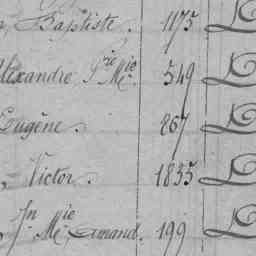 , Baptiste. 1175
Alexandre Pre Mie. 549
Eugène. 267
, Victor. 1835
, Jn Mie Amand. 199